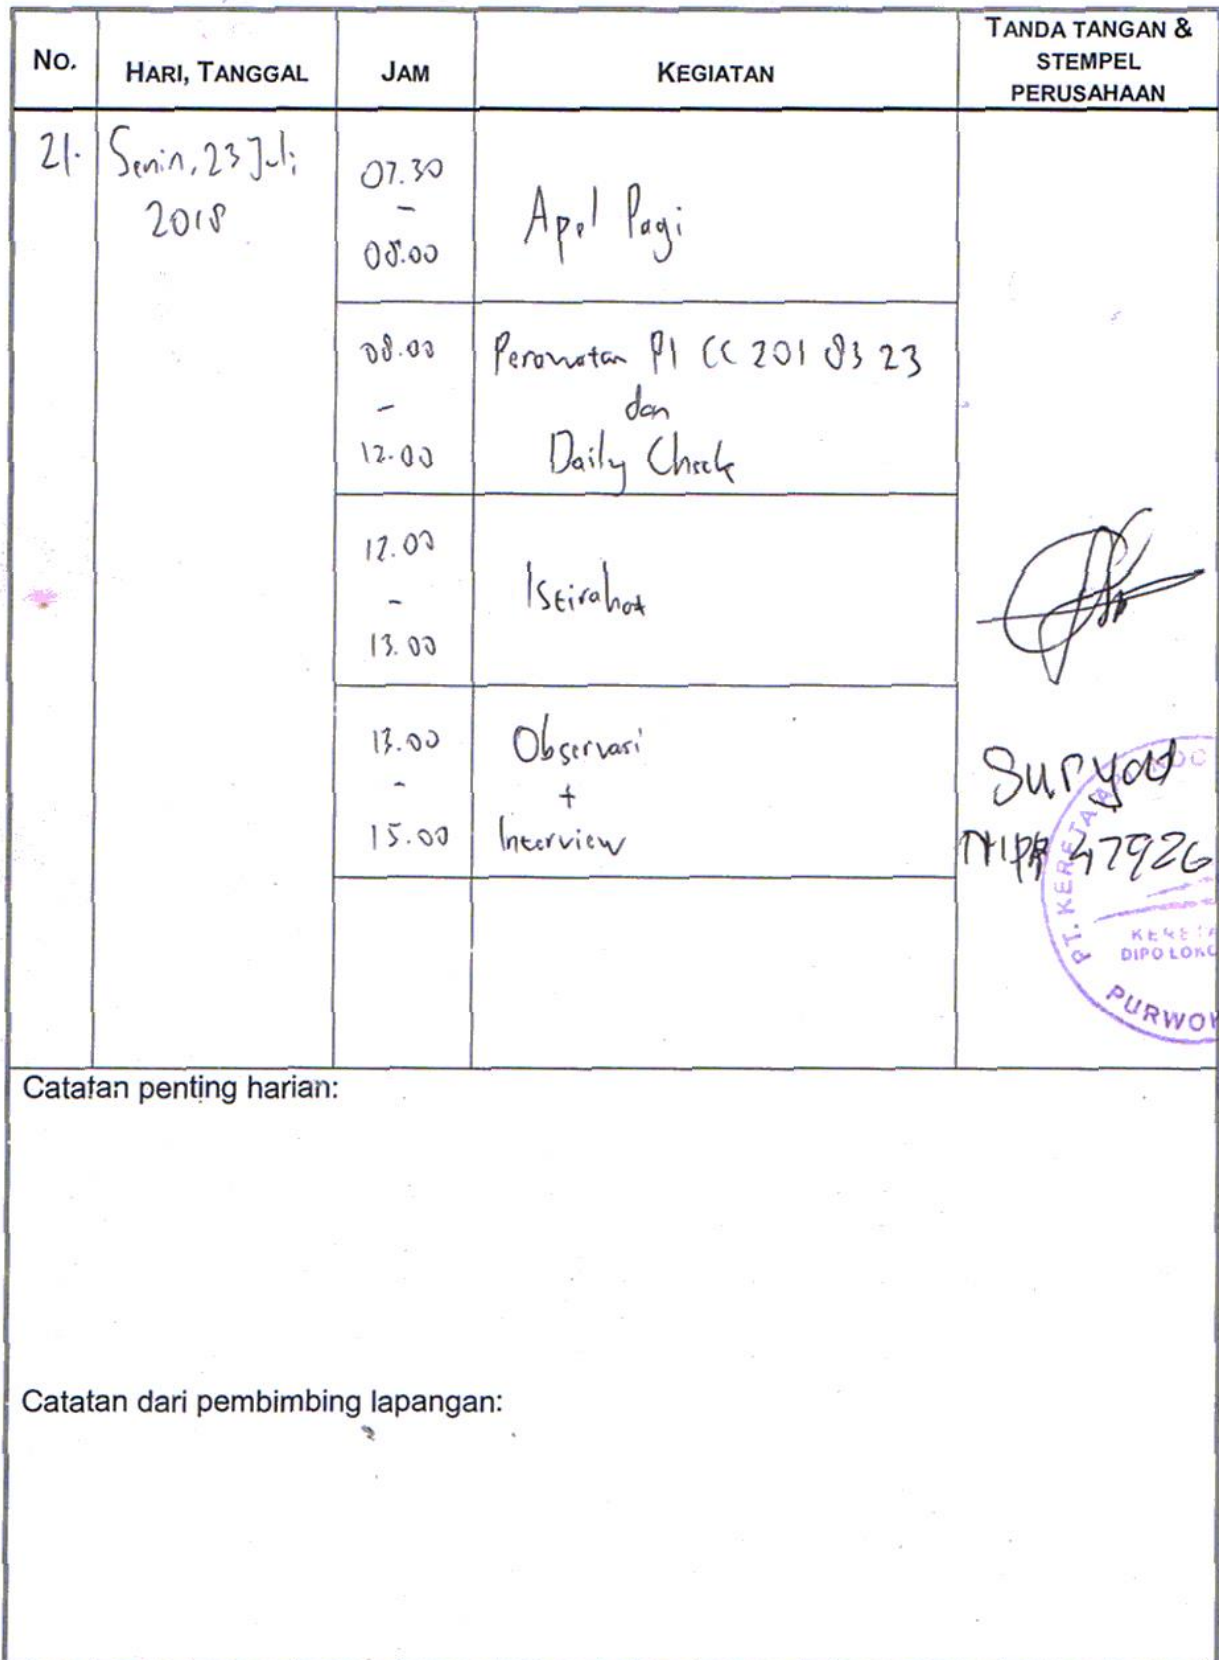 No.
HARI, TANGGAL
JAM
KEGIATAN
TANDA TANGAN &
STEMPEL
PERUSAHAAN
21.
Senin, 23 Juli
2018
07.30
-
08.00
Apel Pagi
08.00
-
12.00
Perawatan P1 CC 201 83 23
dan
Daily Check
12.00
-
13.00
Istirahat
13.00
-
15.00
Observasi
+
Interview
47926
PT. KERETA API
DIPO LOK
PURWO
Catatan penting harian:
Catatan dari pembimbing lapangan: